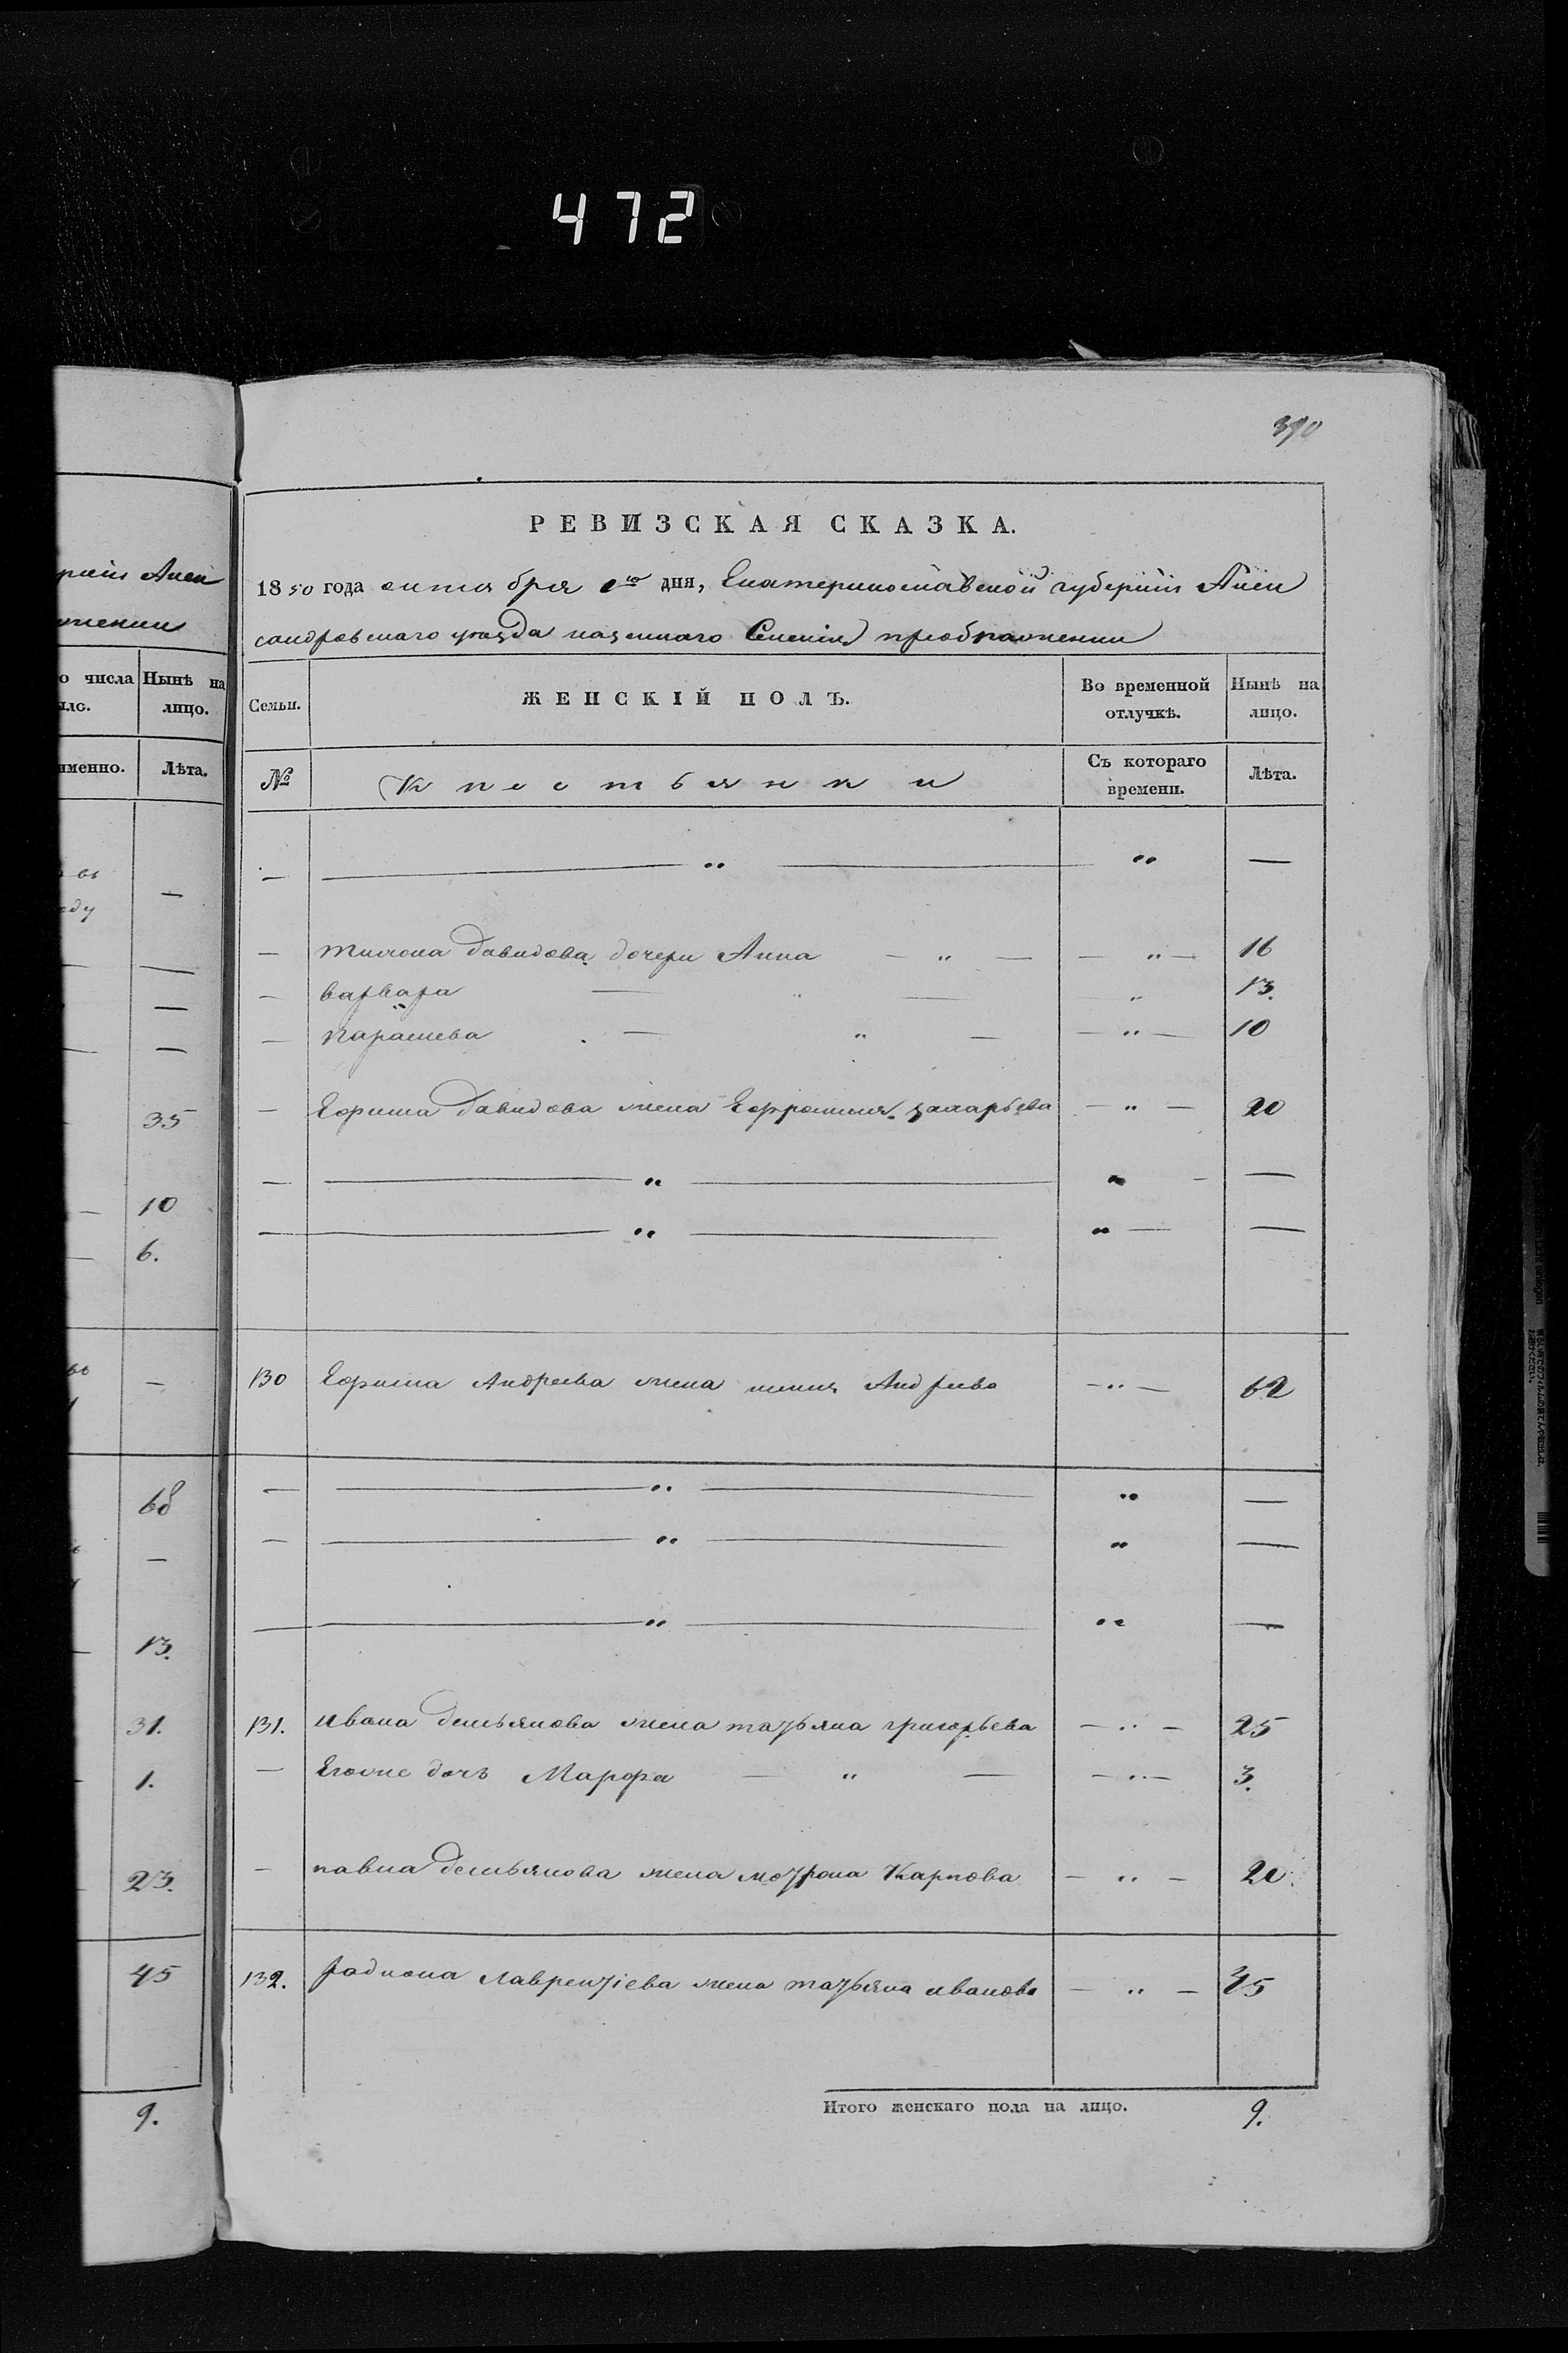 472
390
РЕВИЗСКАЯ СКАЗКА.
1850 года октября 1го дня, Екатеринославской губернии Алек
сандровскаго уезда казеннаго Селения преображенки
Семьи.
ЖЕНСКІЙ ПОЛЪ.
Во временной отлучкѣ.
Нынѣ на лицо.
№
Крестьянки
Съ котораго времени.
Лѣта.
— — „ — „ —
— Тихона Давидова дочери Анна — „ — — „ — 16
— варвара — „ — „ 13.
— параскева — „ — — „ — 10
— Ефима Давидова жена Ефросиния захарьева — „ — 20
— — „ — „ — —
— — „ — „ — —
130 Ефима Андреева жена Андреева — „ — 62
— — „ — „ —
— — „ — „ —
— — „ — „ —
131. ивана демьянова жена татьяна григорьева — „ — 25
— Егоже дочь Марфа — „ — — „ — 3.
— павла демьянова жена мотрона Карпова — „ — 20.
132. радиона лаврентіева жена татьяна иванова — „ — 45
Итого женскаго пола на лицо. 9.
рніи Алек
женки
о числа
ыло.
Нынѣ на лицо.
именно.
Лѣта.
—
—
—
—
35
10
6.
—
68
—
13.
31.
1.
23.
45
9.